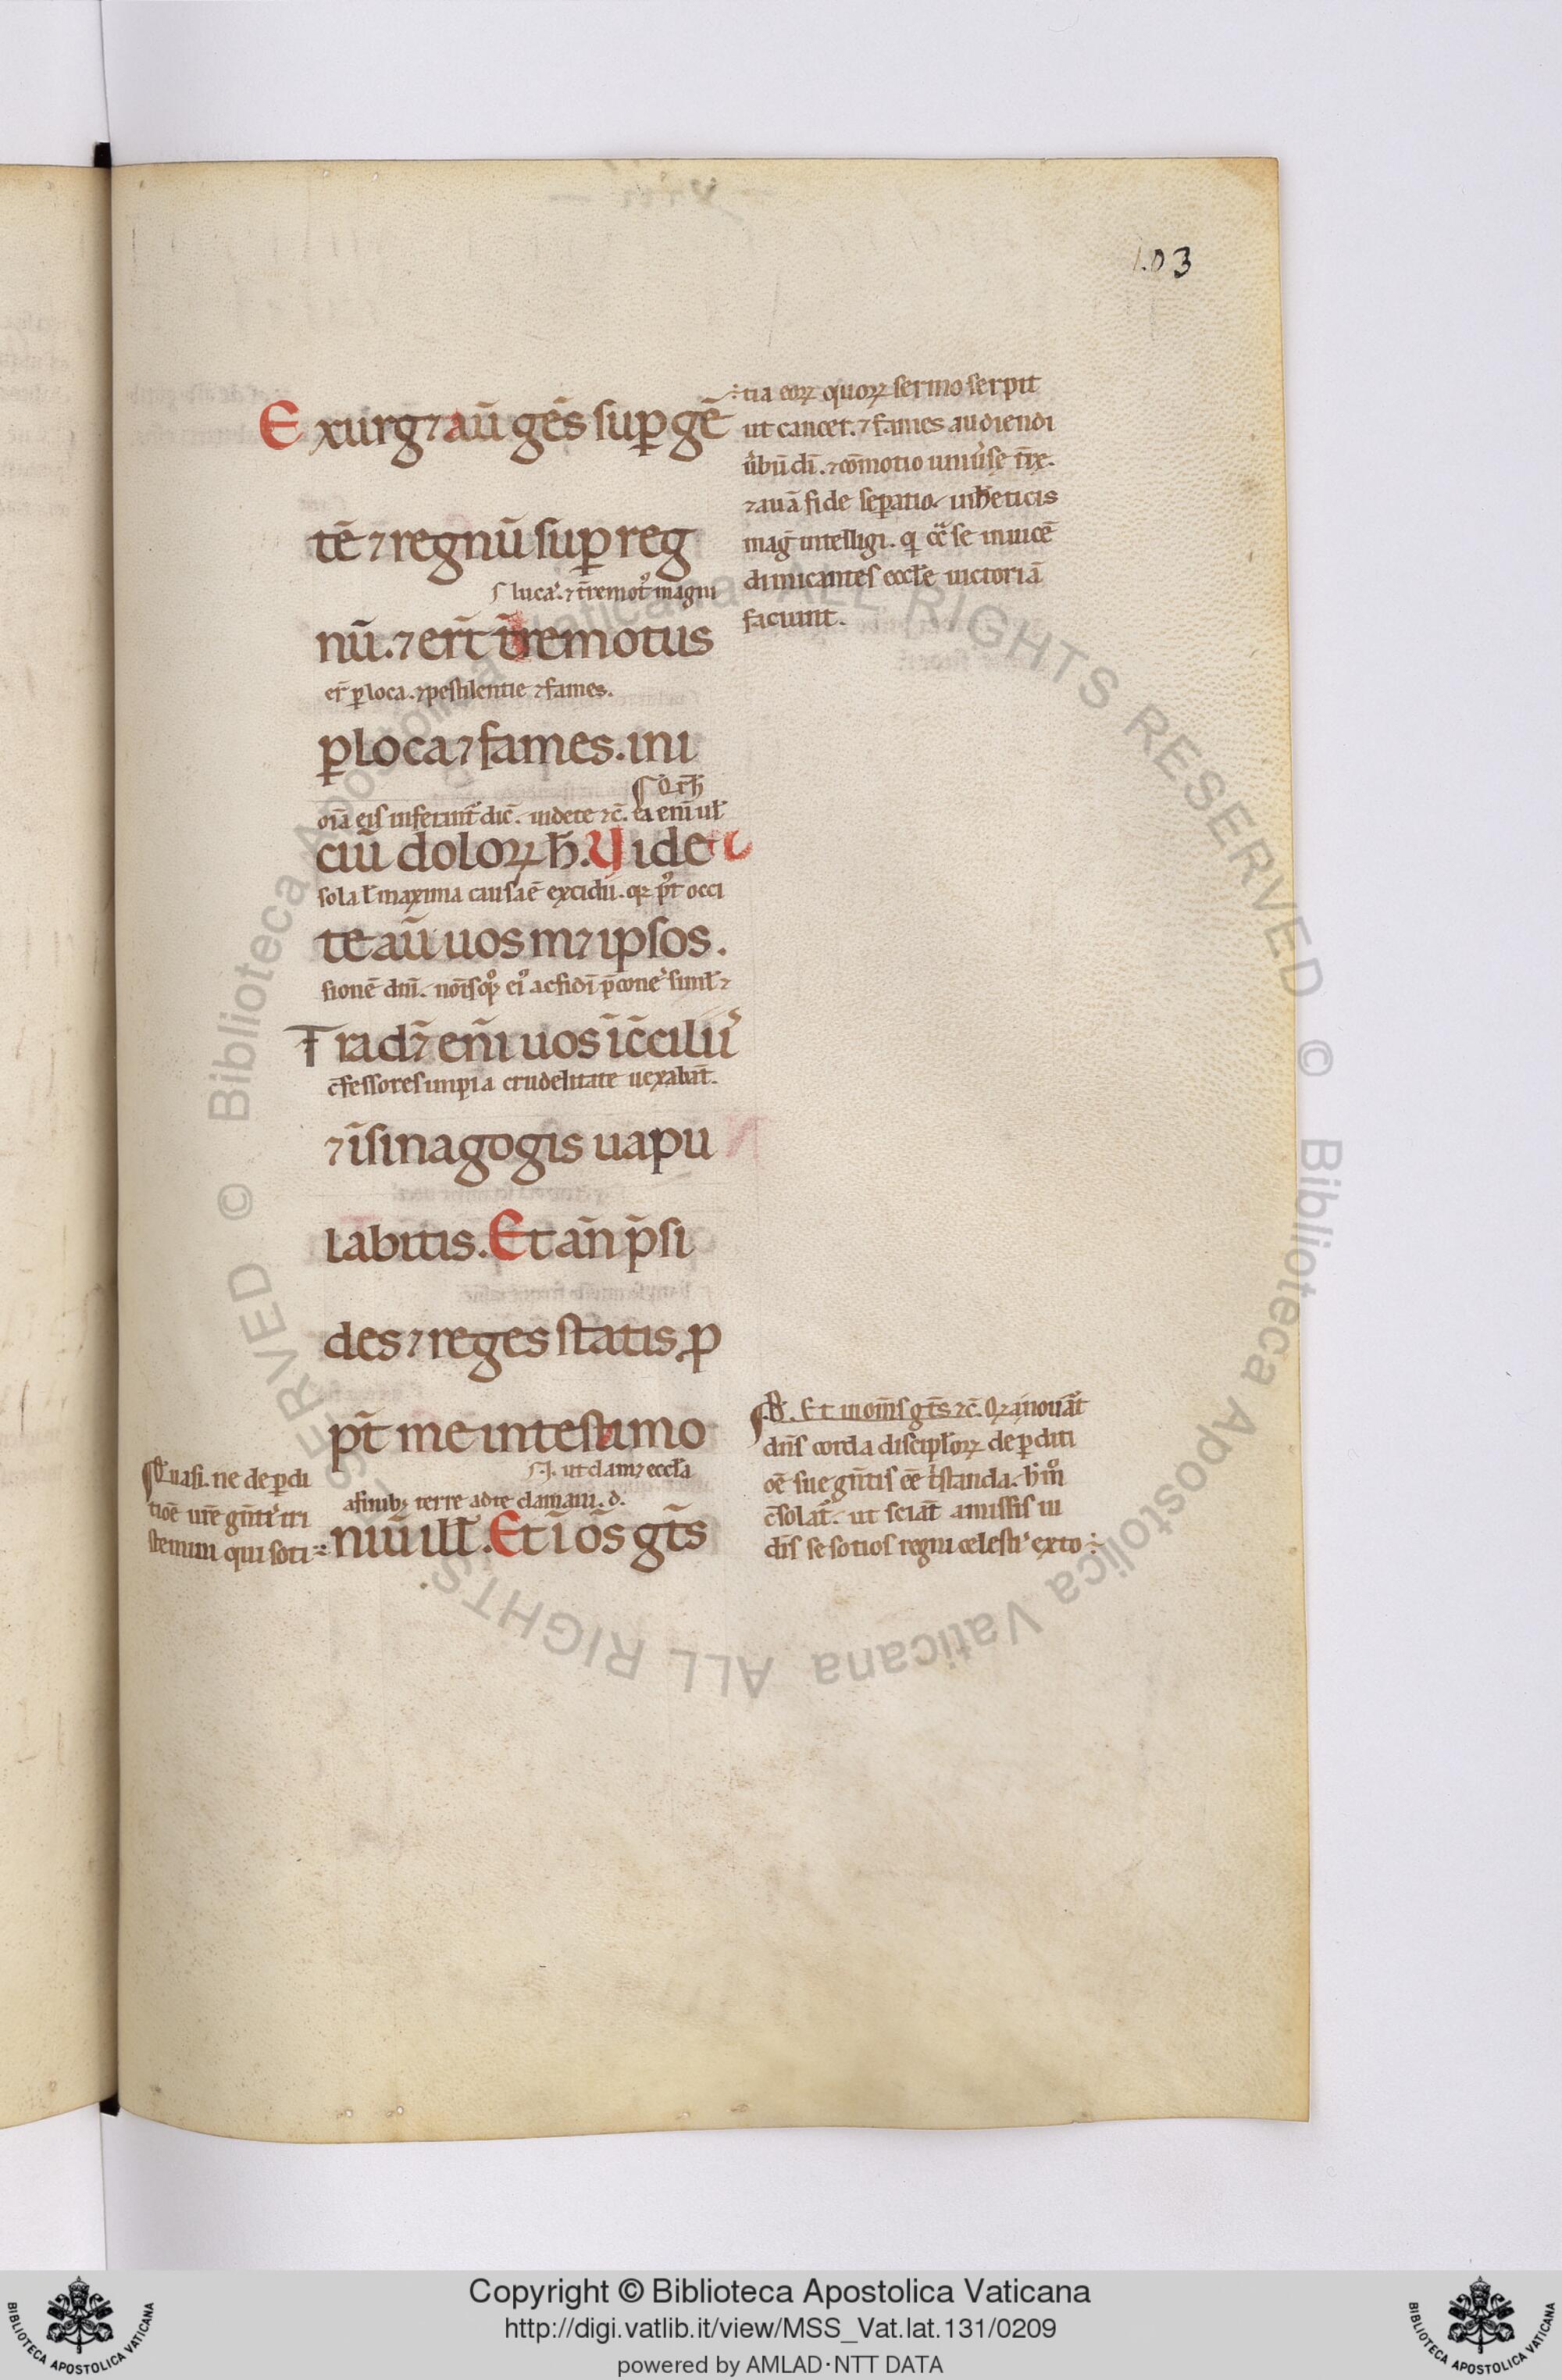 103
Exurg⁊ aū gēs suꝑ gē
tē ⁊ regnū suꝑ reg
ſ lucaꝰ. ⁊ t̄remotꝰ magni
nū. ⁊ er̄t t̄remotus
er̄ ꝑ loca. ⁊ pestilentie ⁊ fames.
ꝑ loca ⁊ fames. ini
oīa eis inferunt᷑ dic̄. uidete ⁊c̄. ea eni ul̄
ciū doloꝝ ħ. Uide
sola ł maxima causa ē excidii. qꝛ occi
te aū uos m⁊ipsos.
sionē dn̄i.
Trad̄⁊ en̄i uos īc̄ciliis
c̄fessores impia crudelitate uexabāt.
⁊ ī sinagogis uapu
labitis. Et an̄ p̄si
des ⁊ reges statis ꝓ
pt̄ me in testimo
.s.J. ut clam⁊ eccl̄a
a finibꝫ terre ad te clamaui. d.
niū ill̄. Et ī os̄ gt̄s
tia eoꝝ quoꝝ sermo serpit
ut cancer. ⁊ fames audiendi
u̾bū dī. ⁊ cōmotio uniu̾se t̄re.
⁊ a ua fide seꝑatio. in ħeticis
maḡ intelligi. qi cͣ se inuicē
dimicantes eccl̄e uictoriā
faciunt.
Quasi. ne de ꝑdi
tiōe ur̄e gn̄ti tri
stemini qui soti
Et in om̄s gt̄s ⁊c̄. Qꝛ nouat᷑
dn̄s corda discipl̄oꝝ de ꝑditi
oē sue gn̄tis eē t̾standa. hͦ mͦ
c̄solat᷑. ut sciāt amissis iu
dīs se sotios regni celestiˢ exto
Copyright © Biblioteca Apostolica Vaticana
http://digi.vatlib.it/view/MSS_Vat.lat.131/0209
powered by AMLAD·NTT DATA
BIBLIOTECA APOSTOLICA VATICANA
BIBLIOTECA APOSTOLICA VATICANA
© Biblioteca Apostolica Vaticana ALL RIGHTS RESERVED © Biblioteca Apostolica Vaticana ALL RIGHTS RESERVED